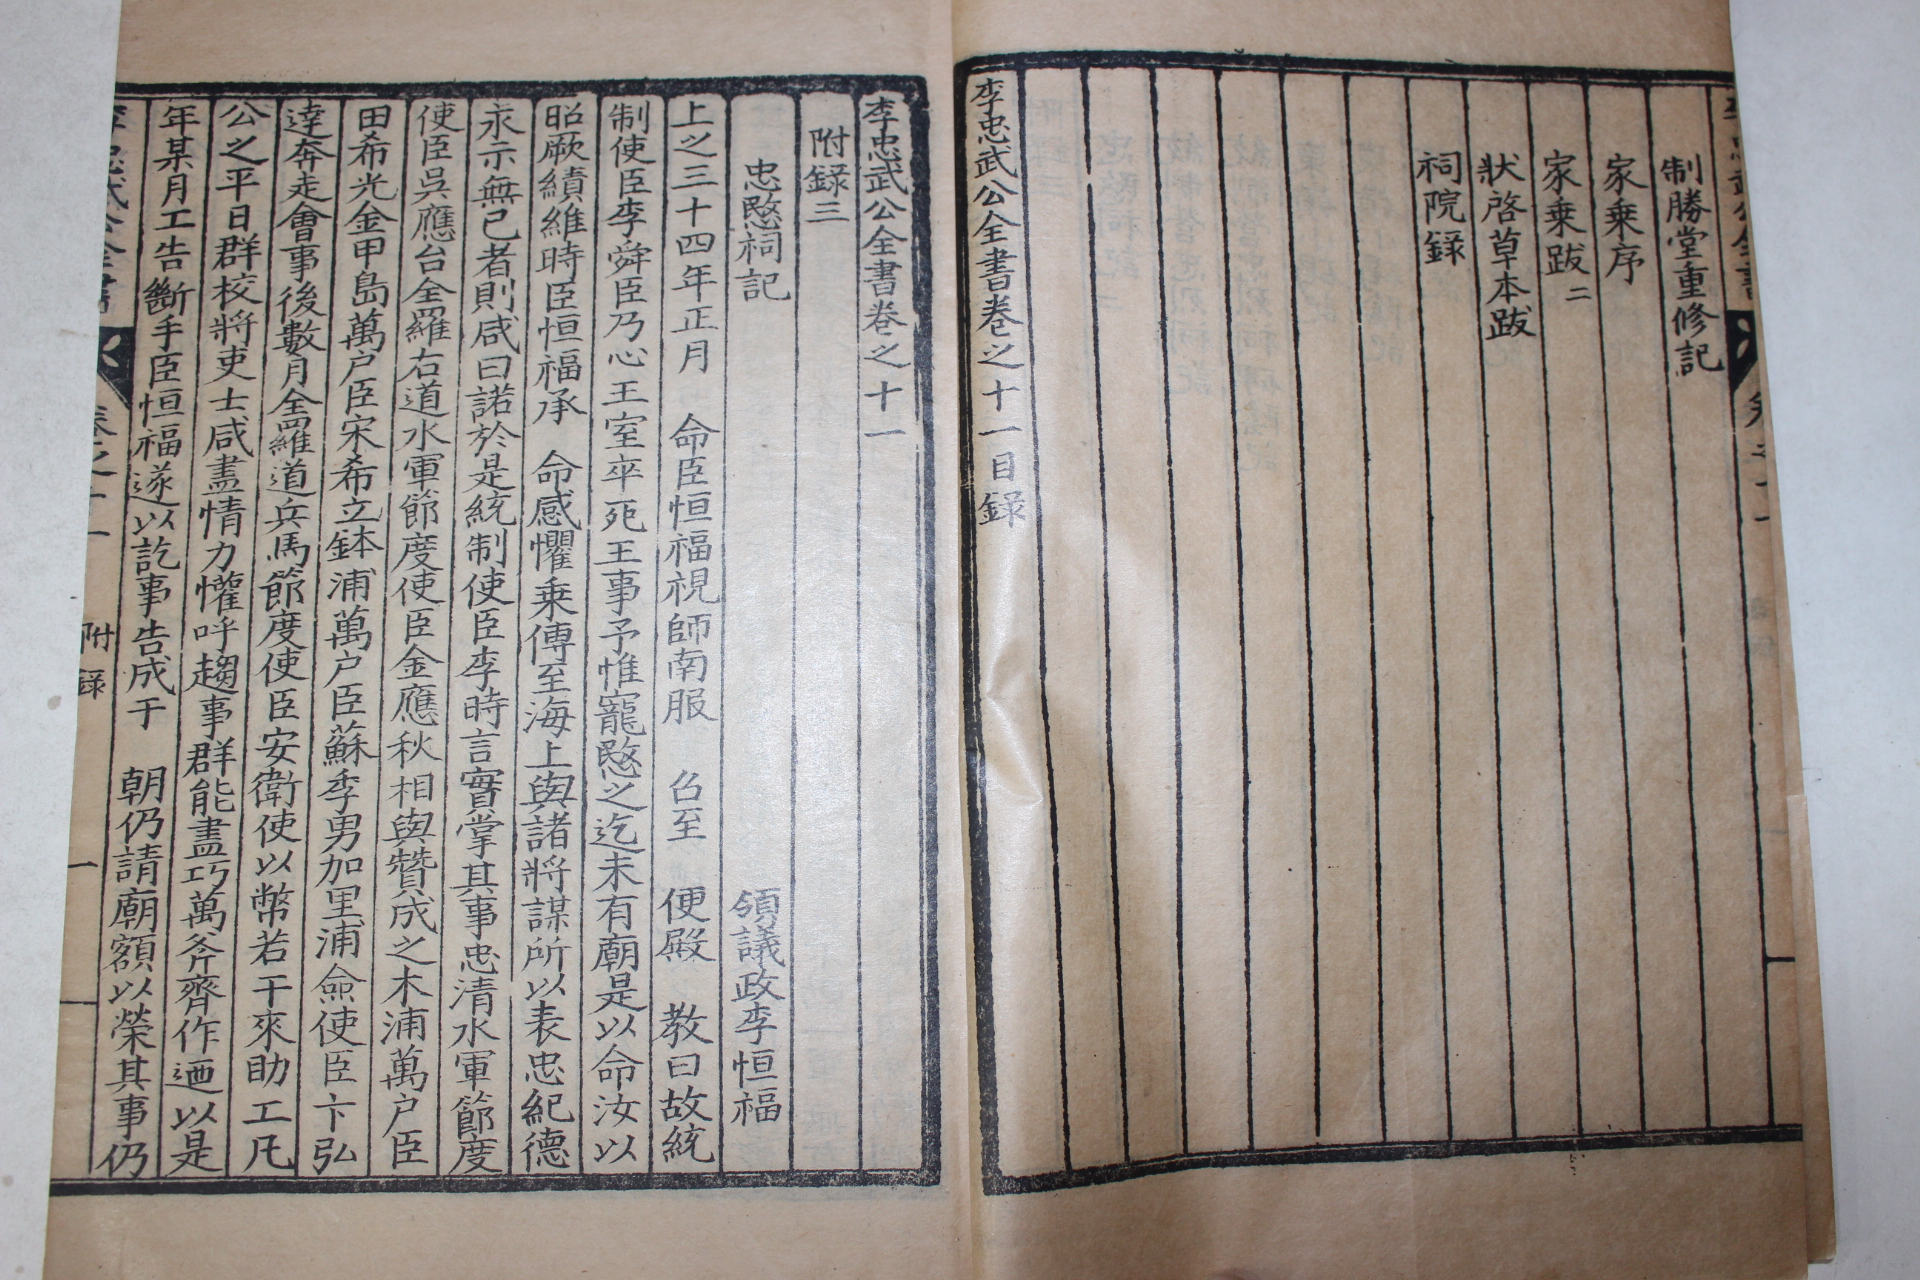 制勝堂重修記
家乘序
家乘跋二
狀啓草本跋
祠院錄
李忠武公全書卷之十一目錄
李忠武公全書卷之十一
附錄三
忠愍祠記 領議政李恒福
上之三十四年正月 命臣恒福視師南服 召至 便殿 教曰故統
制使臣李舜臣乃心王室卒死王事予惟寵愍之迄未有廟是以命汝以
昭厥績維時臣恒福承 命感懼乘傳至海上與諸將謀所以表忠紀德
永示無已者則咸曰諾於是統制使臣李時言實掌其事忠淸水軍節度
使臣吳應台全羅右道水軍節度使臣金應秋相與贊成之木浦萬戶臣
田希光金甲島萬戶臣宋希立鉢浦萬戶臣蘇季男加里浦僉使臣卞弘
達奔走會事後數月全羅道兵馬節度使臣安衛使以幣若干來助工凡
公之平日群校將吏士咸盡情力懽呼趨事群能盡巧萬斧齊作迺以是
年某月工告斷手臣恒福遂以訖事告成于 朝仍請廟額以榮其事仍
附錄 一